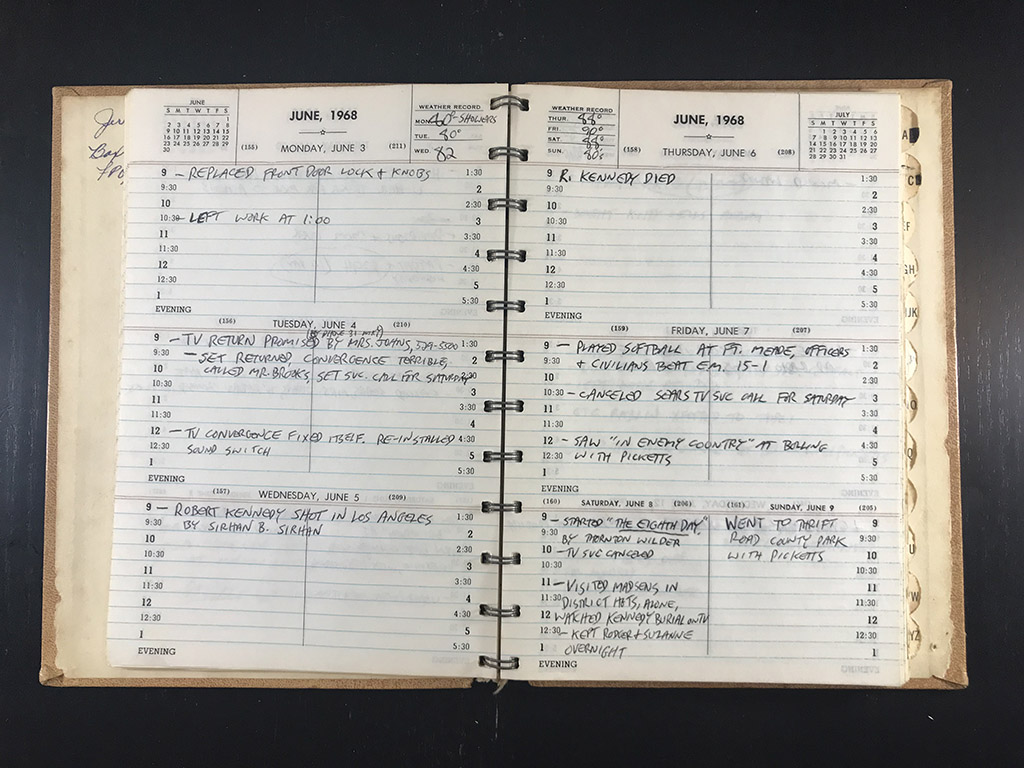 JUNE
S M T W T F S
1
2 3 4 5 6 7 8
9 10 11 12 13 14 15
16 17 18 19 20 21 22
23 24 25 26 27 28 29
30
JUNE, 1968
(155) MONDAY, JUNE 3 (211)
WEATHER RECORD
MON. 80°-SHOWERS
TUE. 80°
WED. 82
9 - REPLACED FRONT DOOR LOCK & KNOBS 1:30
9:30 2
10 2:30
10:30 - LEFT WORK AT 1:00 3
11 3:30
11:30 4
12 4:30
12:30 5
1 5:30
EVENING
(156) TUESDAY, JUNE 4 (210)
9 - TV RETURN PROMISED BY MRS. JOHNS, 529-5500 1:30
9:30 - SET RETURNED CONVERGENCE TERRIBLE, 2
10 CALLED MR. BROOKS, SET SVC. CALL FOR SATURDAY 2:30
10:30 3
11 3:30
11:30 4
12 - TV CONVERGENCE FIXED ITSELF. RE-INSTALLED 4:30
12:30 SOUND SWITCH 5
1 5:30
EVENING
(157) WEDNESDAY, JUNE 5 (209)
9 - ROBERT KENNEDY SHOT IN LOS ANGELES 1:30
9:30 BY SIRHAN B. SIRHAN 2
10 2:30
10:30 3
11 3:30
11:30
12 4
12:30 4:30
1 5
EVENING 5:30
WEATHER RECORD
THUR. 88°
FRI. 90°
SAT. 88°
SUN. 80's
JUNE, 1968
(158) THURSDAY, JUNE 6 (208)
JULY
S M T W T F S
1 2 3 4 5 6
7 8 9 10 11 12 13
14 15 16 17 18 19 20
21 22 23 24 25 26 27
28 29 30 31
9 R. KENNEDY DIED 1:30
9:30 2
10 2:30
10:30 3
11 3:30
11:30 4
12 4:30
12:30 5
1 5:30
EVENING
(159) FRIDAY, JUNE 7 (207)
9 - PLAYED SOFTBALL AT FT. MEADE, OFFICERS 1:30
9:30 & CIVILIANS BEAT E.M. 15-1 2
10 2:30
10:30 - CANCELED SEARS TV SVC CALL FOR SATURDAY 3
11 3:30
11:30 4
12 - SAW "IN ENEMY COUNTRY" AT BOLLING 4:30
12:30 WITH PICKETTS 5
1 5:30
EVENING
(160) SATURDAY, JUNE 8 (206)
9 - STARTED "THE EIGHTH DAY"
9:30 BY THORNTON WILDER
10 - TV SVC CANCELED
10:30
11 - VISITED MADSENS IN
11:30 DISTRICT HGTS, ALONE,
12 WATCHED KENNEDY BURIAL ON TV
12:30 - KEPT RODGER & SUZANNE
1 OVERNIGHT
EVENING
(161) SUNDAY, JUNE 9 (205)
WENT TO THRIFT 9
ROAD COUNTY PARK 9:30
WITH PICKETTS 10
10:30
11
11:30
12
12:30
1
A
C
EF
GH
JK
O
Q
U
W
YZ